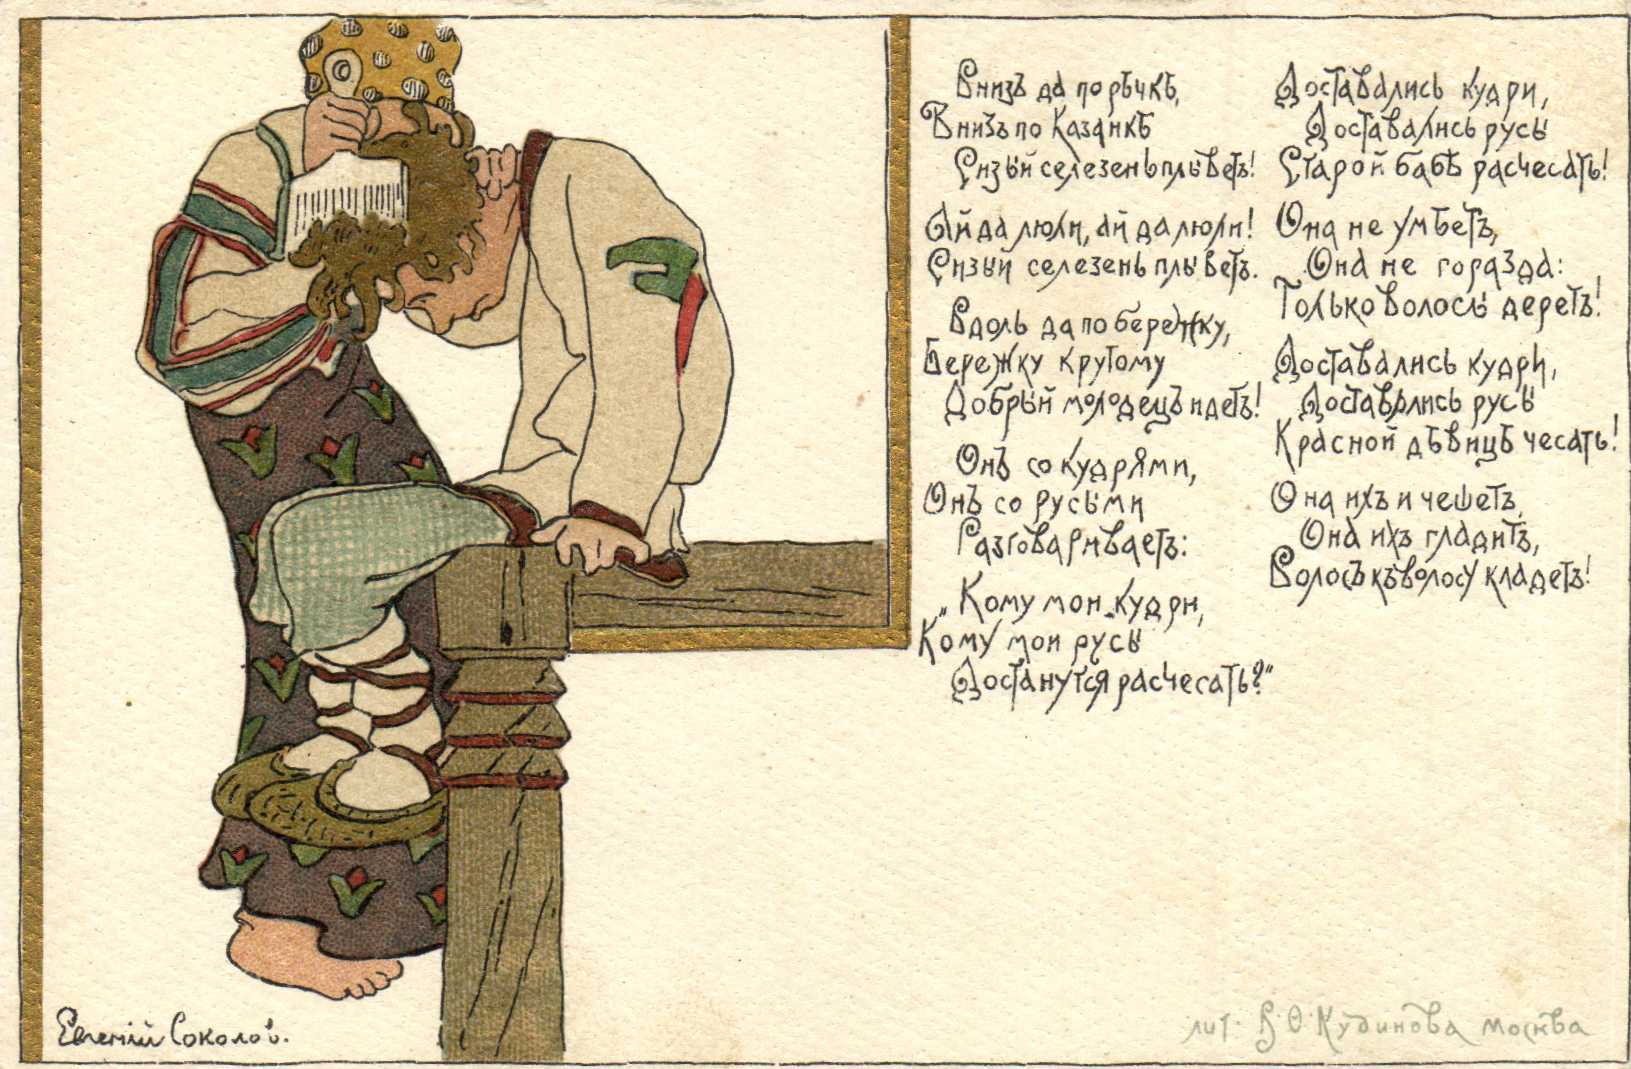 Внизъ да по рѣчкѣ,
Внизъ по Казанкѣ
Сизый селезень плыветъ!
Ай да люли, ай да люли!
Сизый селезень плыветъ.
Вдоль да по бережку,
Бережку крутому
Добрый молодецъ идетъ!
Онъ со кудрями,
Онъ со русыми
Разговариваетъ:
„Кому мои кудри,
Кому мои русы
Достанутся расчесать?"
Доставались кудри,
Доставались русы
Старой бабѣ расчесать!
Она не умѣетъ,
Она не горазда:
Только волосы деретъ!
Доставались кудри,
Доставались русы
Красной дѣвицѣ чесать!
Она ихъ и чешетъ,
Она ихъ гладитъ,
Волосъ къ волосу кладетъ!
Евгеній Соколовъ.
лит. В.Ѳ. Кудинова Москва